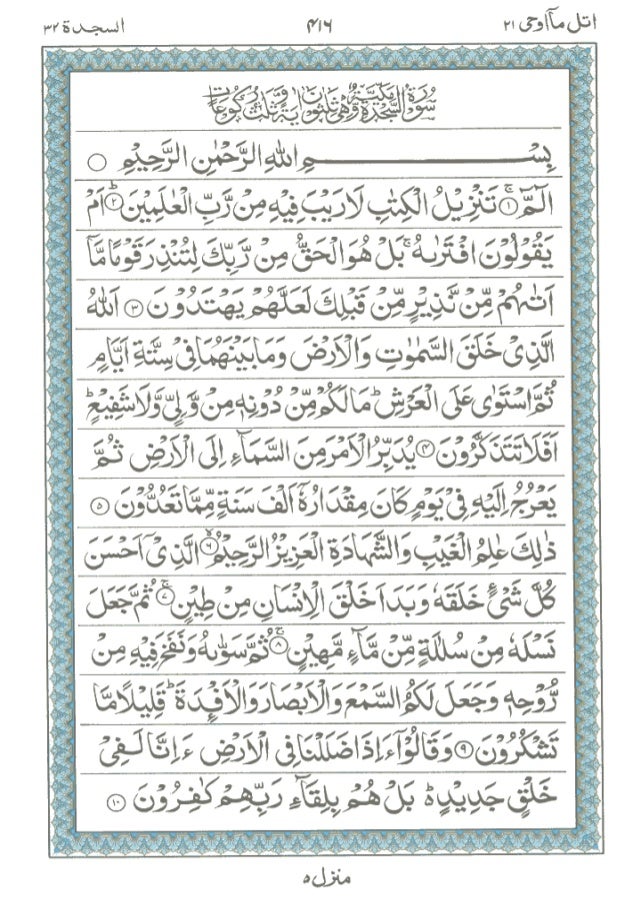 اتل مآاوحی ۲۱
۴۱۶
السجدة ۳۲
سُوْرَةُ السَّجْدَةِ مَكِّيَّةٌ وَّهِيَ ثَلٰثُوْنَ اٰيَةً وَّثَلٰثُ رُكُوْعَاتٍ
بِسْمِ اللهِ الرَّحْمٰنِ الرَّحِيْمِ ○
الٓمّٓ ۚ﴿۱﴾ تَنْزِيْلُ الْكِتٰبِ لَا رَيْبَ فِيْهِ مِنْ رَّبِّ الْعٰلَمِيْنَ ؕ﴿۲﴾ اَمْ
يَقُوْلُوْنَ افْتَرٰىهُ ۚ بَلْ هُوَ الْحَقُّ مِنْ رَّبِّكَ لِتُنْذِرَ قَوْمًا مَّاۤ
اَتٰىهُمْ مِّنْ نَّذِيْرٍ مِّنْ قَبْلِكَ لَعَلَّهُمْ يَهْتَدُوْنَ ﴿۳﴾ اَللهُ
الَّذِيْ خَلَقَ السَّمٰوٰتِ وَالْاَرْضَ وَمَا بَيْنَهُمَا فِيْ سِتَّةِ اَيَّامٍ
ثُمَّ اسْتَوٰى عَلَى الْعَرْشِ ؕ مَا لَكُمْ مِّنْ دُوْنِهٖ مِنْ وَّلِيٍّ وَّلَا شَفِيْعٍ ؕ
اَفَلَا تَتَذَكَّرُوْنَ ﴿۴﴾ يُدَبِّرُ الْاَمْرَ مِنَ السَّمَآءِ اِلَى الْاَرْضِ ثُمَّ
يَعْرُجُ اِلَيْهِ فِيْ يَوْمٍ كَانَ مِقْدَارُهٗۤ اَلْفَ سَنَةٍ مِّمَّا تَعُدُّوْنَ ﴿۵﴾
ذٰلِكَ عٰلِمُ الْغَيْبِ وَالشَّهَادَةِ الْعَزِيْزُ الرَّحِيْمُ ۙ﴿۶﴾ الَّذِيْۤ اَحْسَنَ
كُلَّ شَيْءٍ خَلَقَهٗ وَبَدَاَ خَلْقَ الْاِنْسَانِ مِنْ طِيْنٍ ۚ﴿۷﴾ ثُمَّ جَعَلَ
نَسْلَهٗ مِنْ سُلٰلَةٍ مِّنْ مَّآءٍ مَّهِيْنٍ ۚ﴿۸﴾ ثُمَّ سَوّٰىهُ وَنَفَخَ فِيْهِ مِنْ
رُّوْحِهٖ وَجَعَلَ لَكُمُ السَّمْعَ وَالْاَبْصَارَ وَالْاَفْـِٕدَةَ ؕ قَلِيْلًا مَّا
تَشْكُرُوْنَ ﴿۹﴾ وَقَالُوْۤا ءَاِذَا ضَلَلْنَا فِي الْاَرْضِ ءَاِنَّا لَفِيْ
خَلْقٍ جَدِيْدٍ ؕ۬ بَلْ هُمْ بِلِقَآئِ رَبِّهِمْ كٰفِرُوْنَ ﴿۱۰﴾
منزل ۵